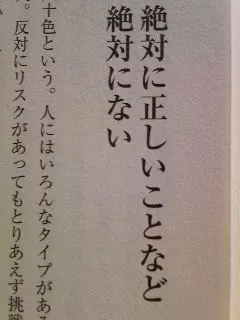 絶対に正しいことなど
絶対にない
十色という。人にはいろんなタイプがある
。反対にリスクがあってもとりあえず挑戦